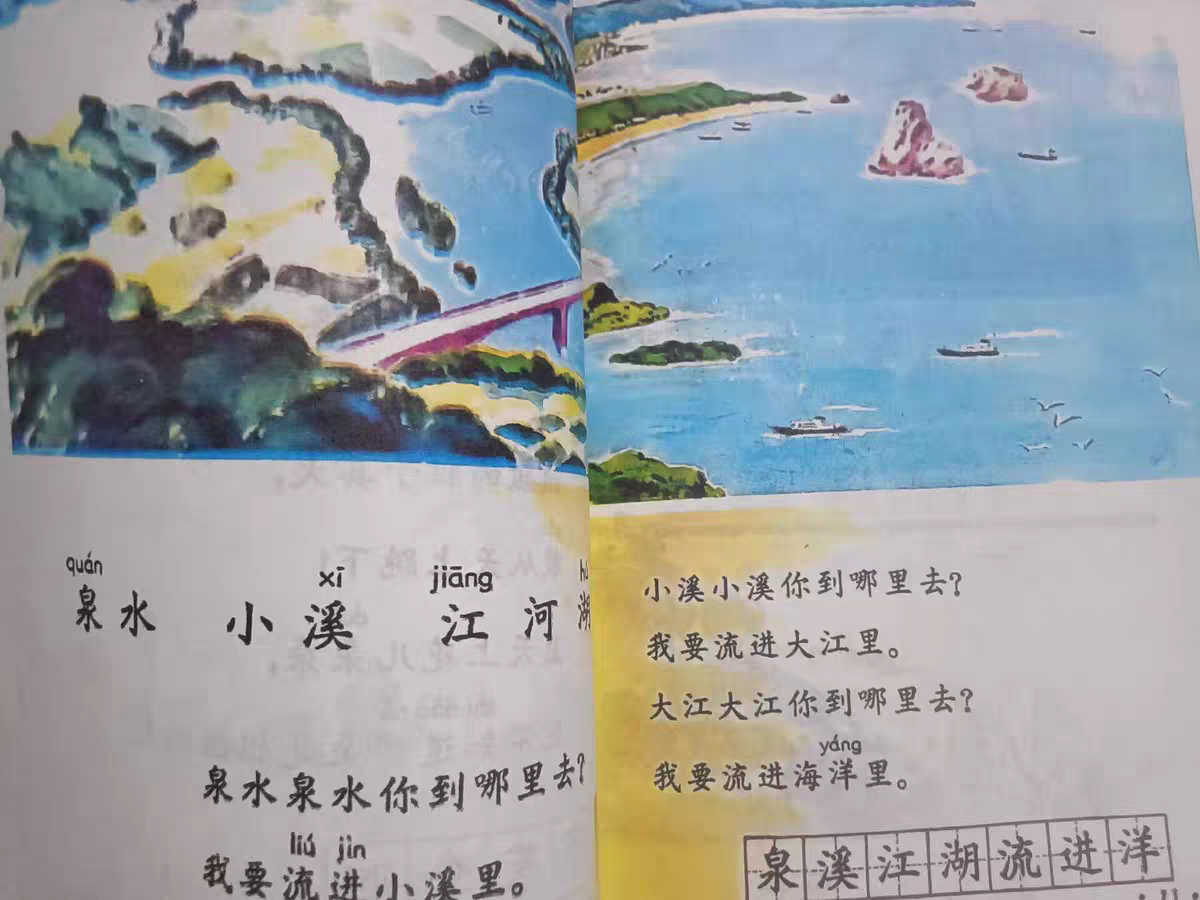 quán
泉水
xī
小溪
jiāng
江河
泉水泉水你到哪里去?
liú jìn
我要流进小溪里。
小溪小溪你到哪里去?
我要流进大江里。
大江大江你到哪里去?
yáng
我要流进海洋里。
泉溪江湖流进洋